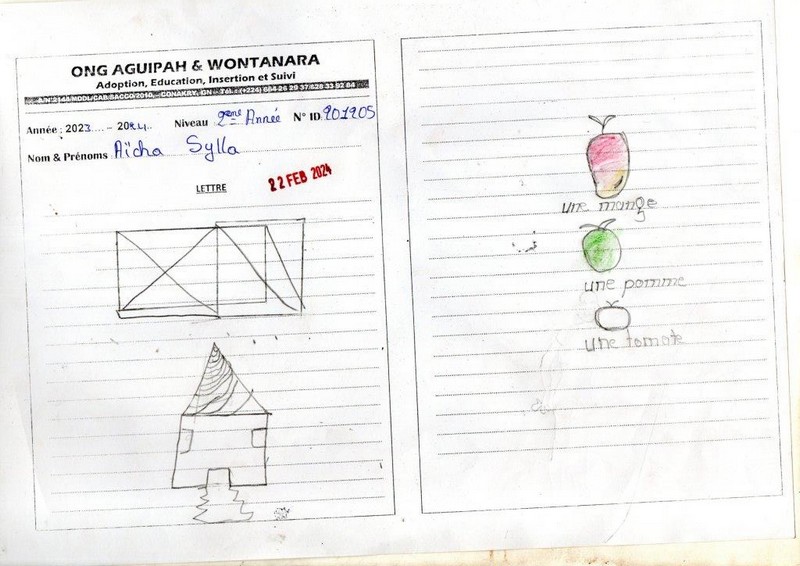 ONG AGUIPAH & WONTANARA
Adoption, Education, Insertion et Suivi
CONAKRY, GN
Année : 2023.... - 2024.. Niveau 2ème Année N° ID 201205
Nom & Prénoms Aïcha Sylla
LETTRE
22 FEB 2024
une mange
une pomme
une tomate